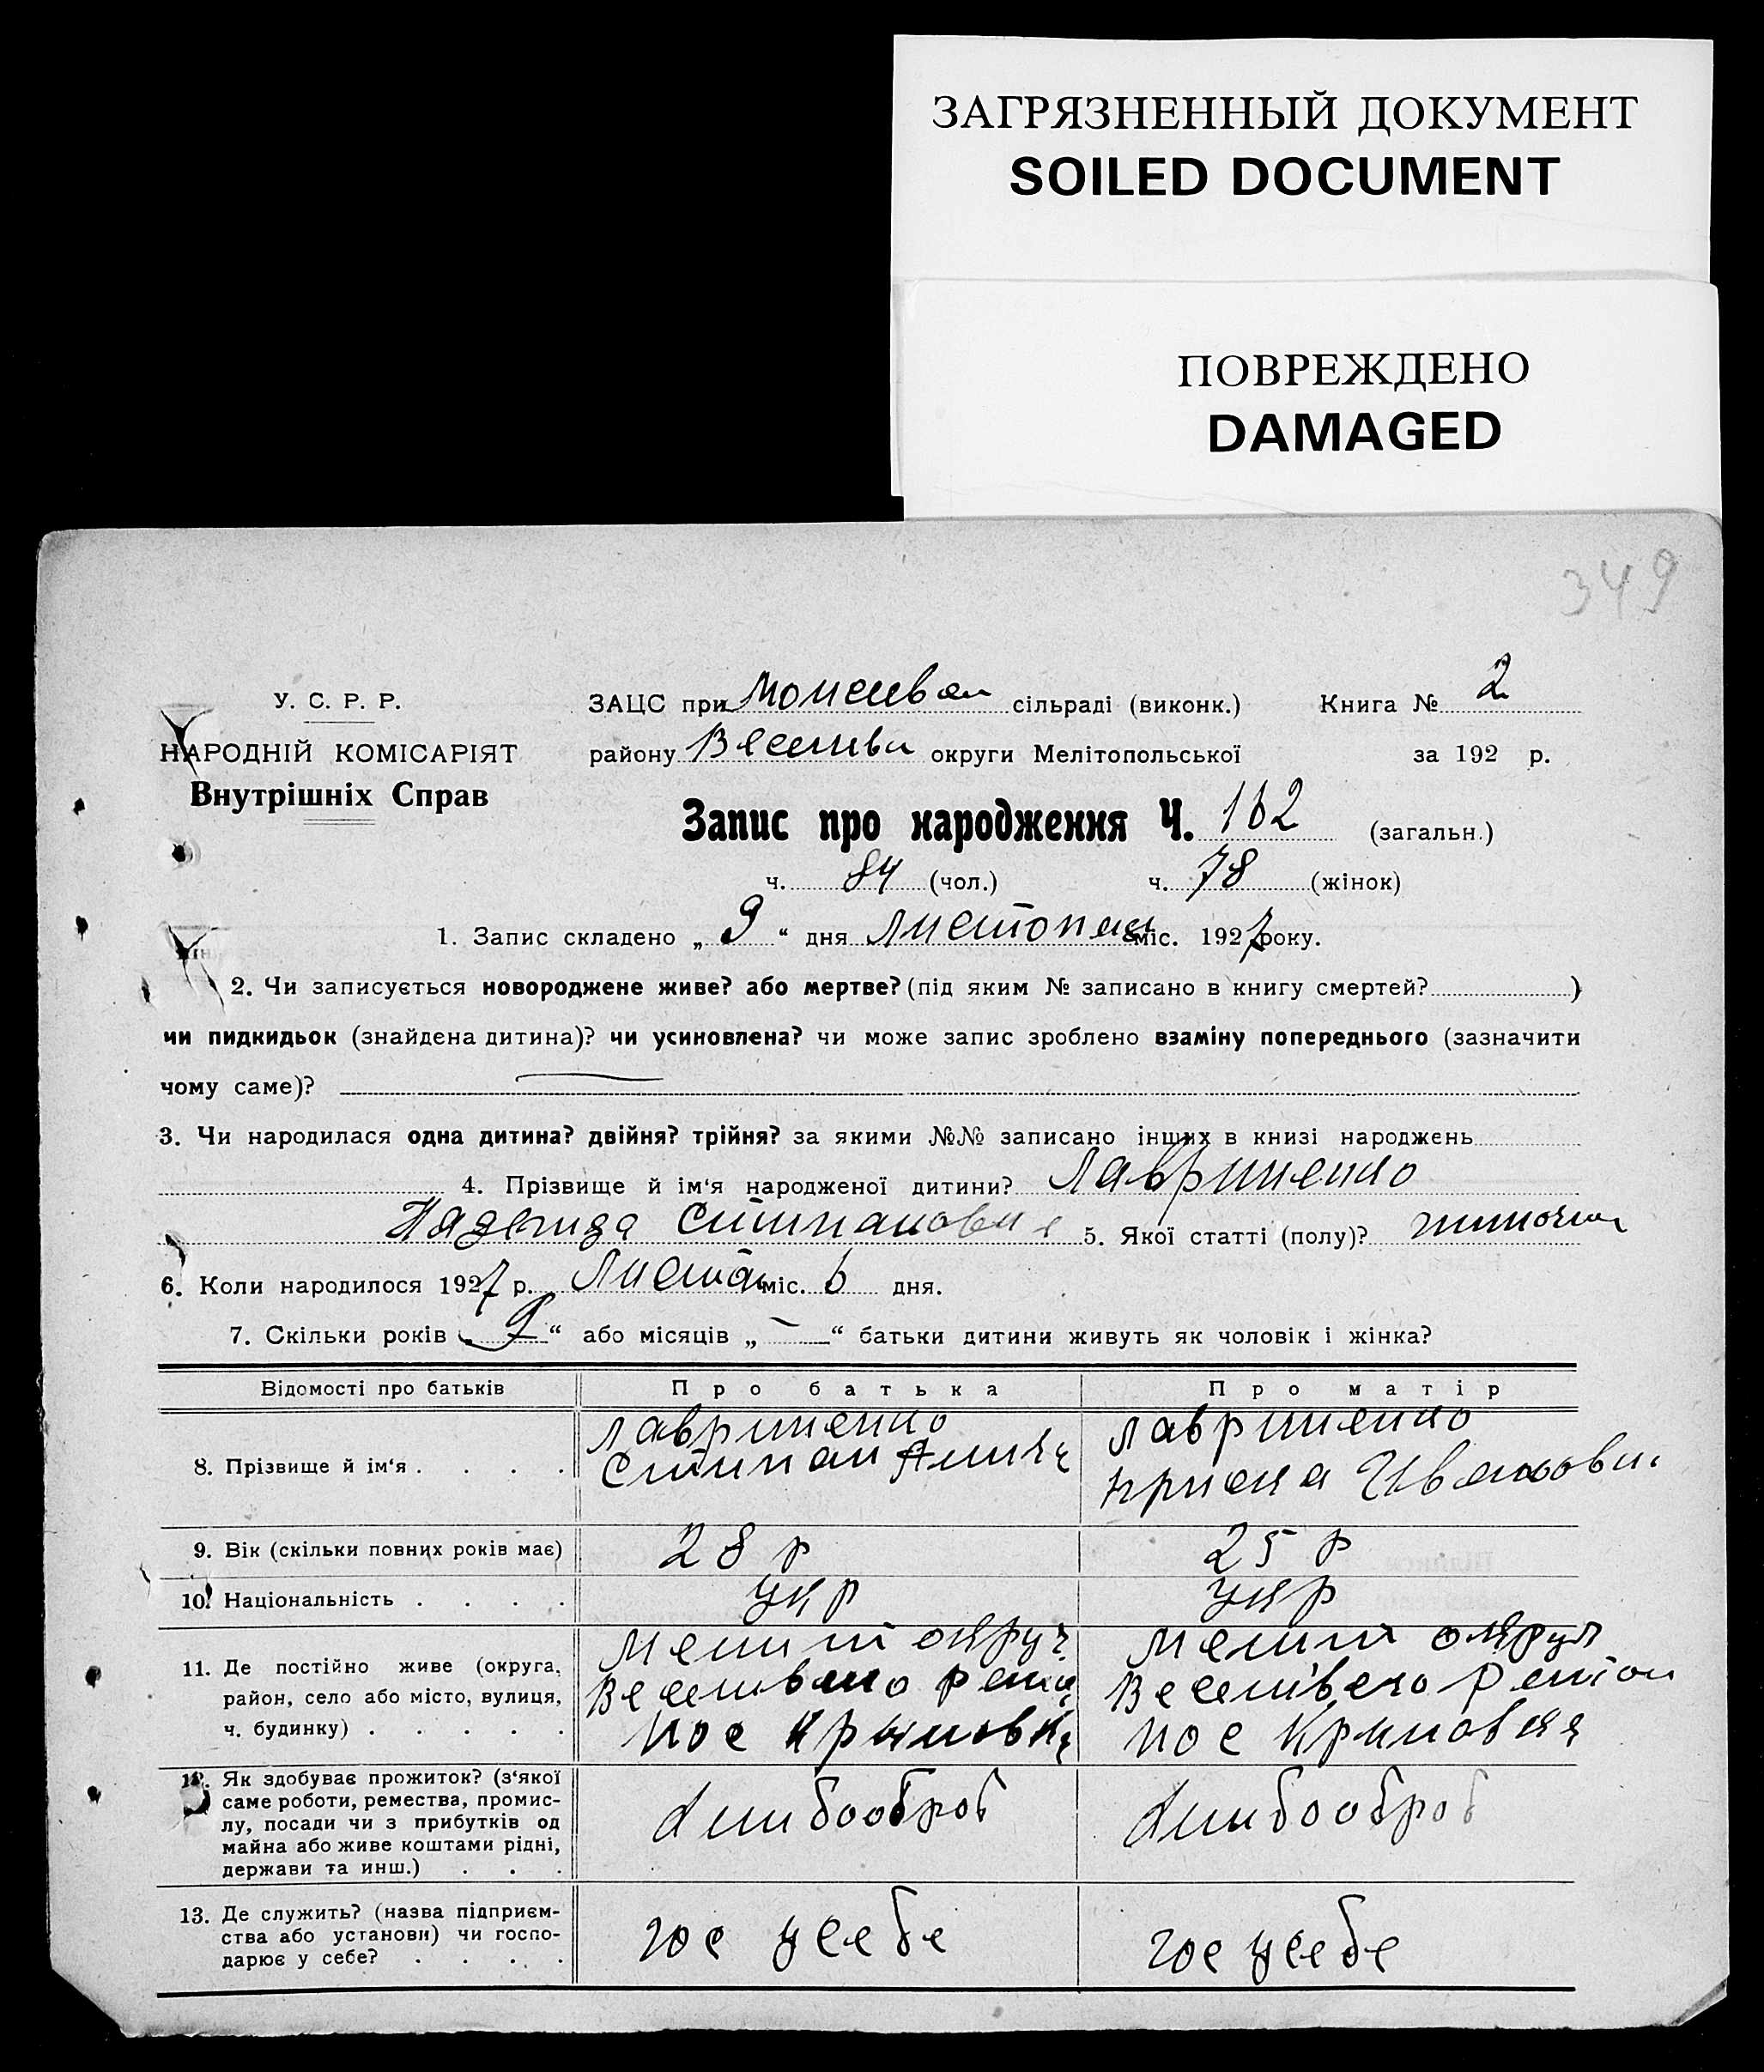 ЗАГРЯЗНЕННЫЙ ДОКУМЕНТ
SOILED DOCUMENT
ПОВРЕЖДЕНО
DAMAGED
349
У. С. Р. Р.
НАРОДНІЙ КОМІСАРІЯТ
Внутрішніх Справ
ЗАЦС при сільраді (виконк.) Книга № 2
району округи Мелітопольської за 192 р.
Запис про народження Ч. 162 (загальн.)
ч. 84 (чол.) ч. 78 (жінок)
1. Запис складено „ 9 “ дня листопад міс. 1927 року.
2. Чи записується новороджене живе? або мертве? (під яким № записано в книгу смертей? )
чи пидкидьок (знайдена дитина)? чи усиновлена? чи може запис зроблено взаміну попереднього (зазначити
чому саме)?
3. Чи народилася одна дитина? двійня? трійня? за якими №№ записано інших в книзі народжень
4. Прізвище й ім‘я народженої дитини? Лавриненко
5. Якої статті (полу)?
6. Коли народилося 1927 р. Лист міс. 6 дня.
7. Скільки років „ 9 “ або місяців „ — “ батьки дитини живуть як чоловік і жінка?
Відомості про батьків Про батька Про матір
8. Прізвище й ім‘я . . . . Лавриненко Лавриненко
Степан
9. Вік (скільки повних років має) 28 р 25 р
10. Національність . . . . укр укр
11. Де постійно живе (округа, Меліт округ Меліт округ
район, село або місто, вулиця,
ч. будинку) . . . . . пос пос
12. Як здобуває прожиток? (з‘якої
саме роботи, ремества, промис-
лу, посади чи з прибутків од
майна або живе коштами рідні,
держави та инш.) . . . хлибооброб хлибооброб
13. Де служить? (назва підприєм-
ства або установи) чи госпо-
дарює у себе? . . . . гос у себе гос у себе